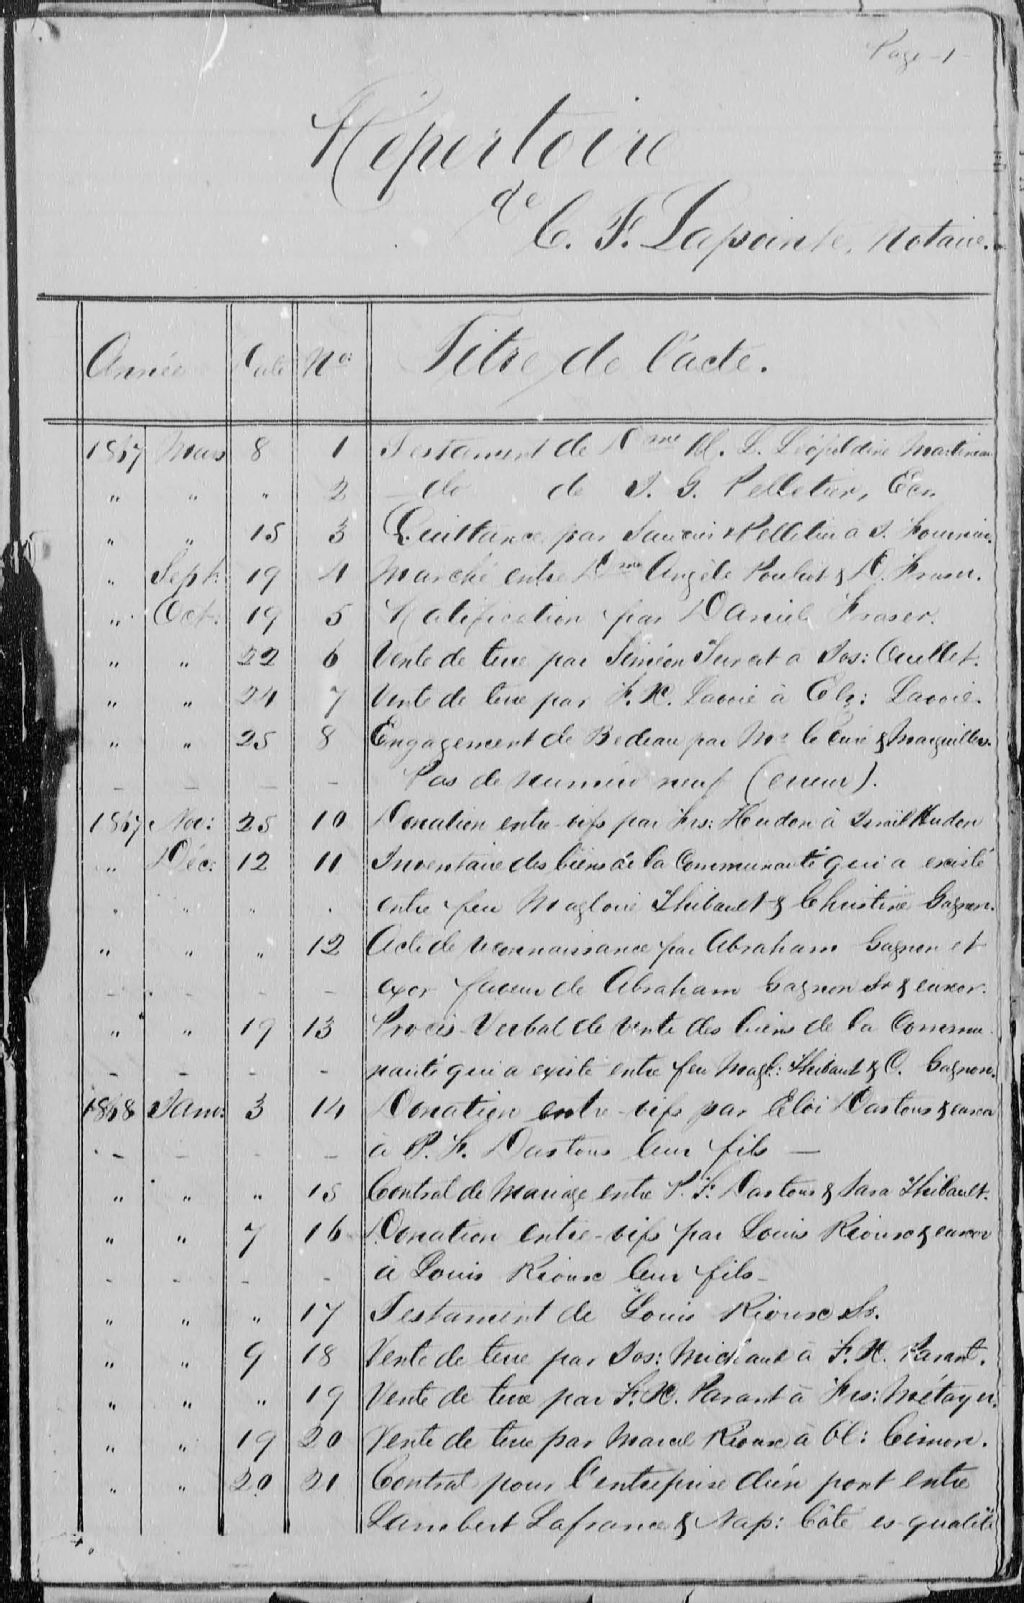 Page -1-
Répertoire
de
C. F. Lapointe, Notaire.
Année Date No. Titre de l'acte.
1867 Mars 8 1 Testament de Dme M. L. Léopoldine Martineau
" " " 2 - do de J. G. Pelletier, Ecr.
" " 15 3 Quittance par & Pelletier à J. Fournier.
" Sept. 19 4 Marché entre Dme Angèle Pouliot & D. Fraser.
" Oct. 19 5 Ratification par Daniel Fraser.
" " 22 6 Vente de terre par Siméon à Jos: Ouellet.
" " 24 7 Vente de terre par F. X. Lavoie à Elz: Lavoie.
" " 25 8 Engagement de Bedeau par Mr. le Curé & Marguilliers.
- - - - Pas de numéro neuf (erreur).
1867 Nov: 25 10 Donation entre-vifs par Frs: Hudon à Israël Hudon
" Déc: 12 11 Inventaire des biens de la Communauté qui a existé
" " " . entre feu Magloire Thibault & Christine Gagnon.
" " " 12 Acte de reconnaissance par Abraham Gagnon et
- - - - uxor faveur de Abraham Gagnon Sr & uxor.
" " 19 13 Procès-Verbal de vente des biens de la Commu-
- - - - nauté qui a existé entre feu Magl: Thibault & C. Gagnon.
1868 Janv: 3 14 Donation entre-vifs par Eloi Dastous & uxor
- - - - à P. F. Dastous leur fils —
" " " 15 Contrat de Mariage entre P. F. Dastous & Sara Thibault.
" " 7 16 Donation entre-vifs par Louis Rioux & uxor
- - - - à Louis Rioux leur fils -
" " " 17 Testament de Louis Rioux Sr.
" " 9 18 Vente de terre par Jos: Michaud à F. X. Parant.
" " " 19 Vente de terre par F. X. Parant à Frs: Métayer.
" " 19 20 Vente de terre par Marcel Rioux à Ol: Cimon.
" " 20 21 Contrat pour l'entreprise d'un pont entre
Lambert Lafrance & Nap: Côté ès-qualité